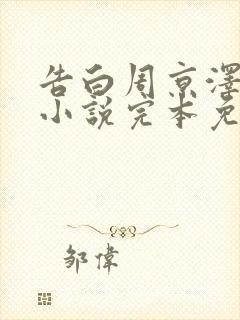 告白周京澤
小說完本免
鄒偉